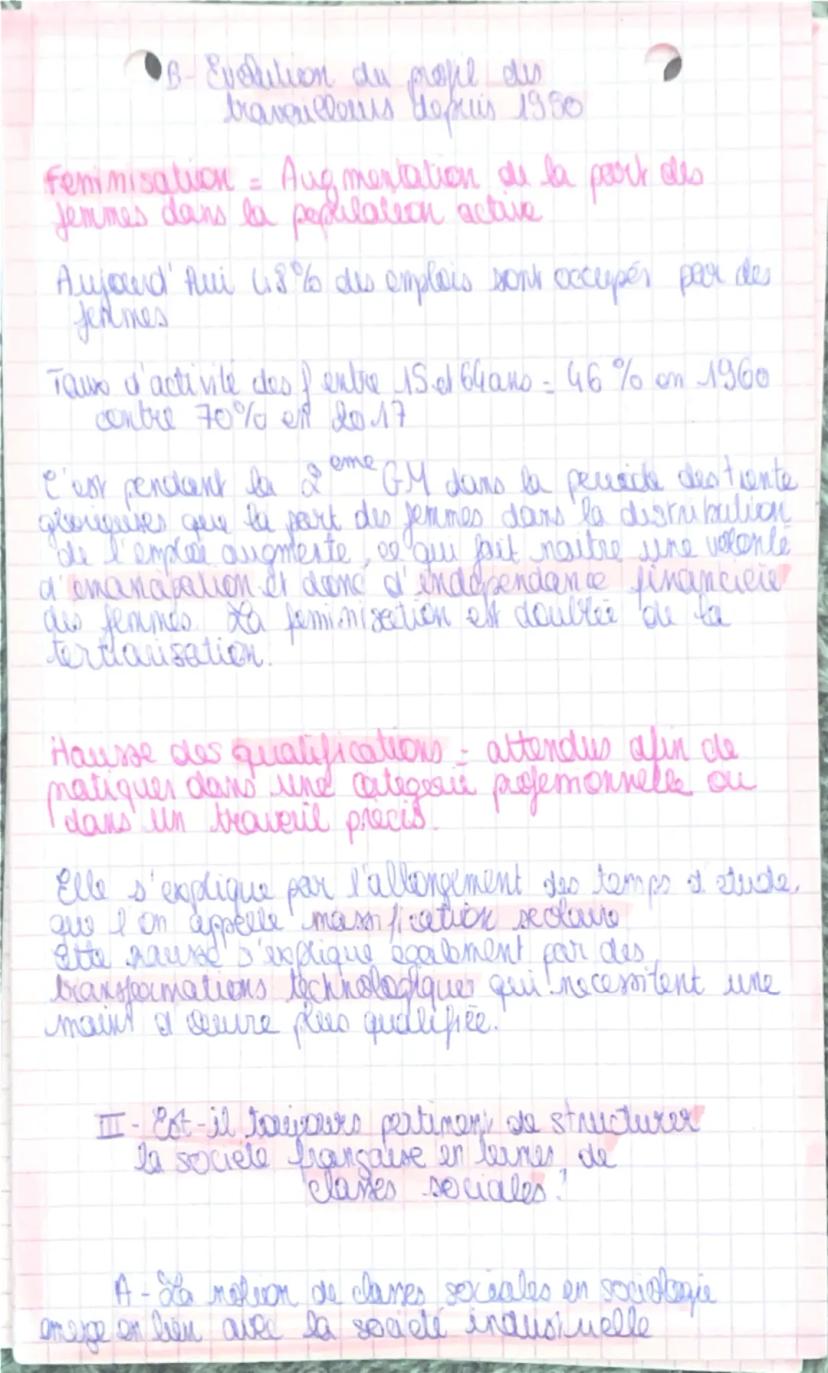 B- Evolution du profil des
travailleurs depuis 1980
Feminisation = Augmentation de la part des
femmes dans la population active
Aujourd'hui 48% des emplois sont occupés par des
femmes
Taux d'activité des f entre 15 et 64 ans = 46 % en 1960
contre 70% en 2017
C'est pendant la 2eme GM dans la periode des trente
glorieuses que la part des femmes dans la distribution
de l'emploi augmente, ce qui fait naitre une volonté
d'emancipation et donc d'independance financiere
des femmes. La feminisation est doublée de la
tertiarisation.
Hausse des qualifications = attendus afin de
pratiquer dans une categorie professionnelle ou
dans un travail precis.
Elle s'explique par l'allongement des temps d'etude,
que l'on appelle massification scolaire
Cette hausse s'explique egalement par des
transformations technologiques qui necessitent une
maint d'œuvre plus qualifiée.
III - Est-il toujours pertinent de structurer
la societe française en termes de
classes sociales ?
A - La notion de classes sociales en sociologie
emerge en lien avec la societé industrielle